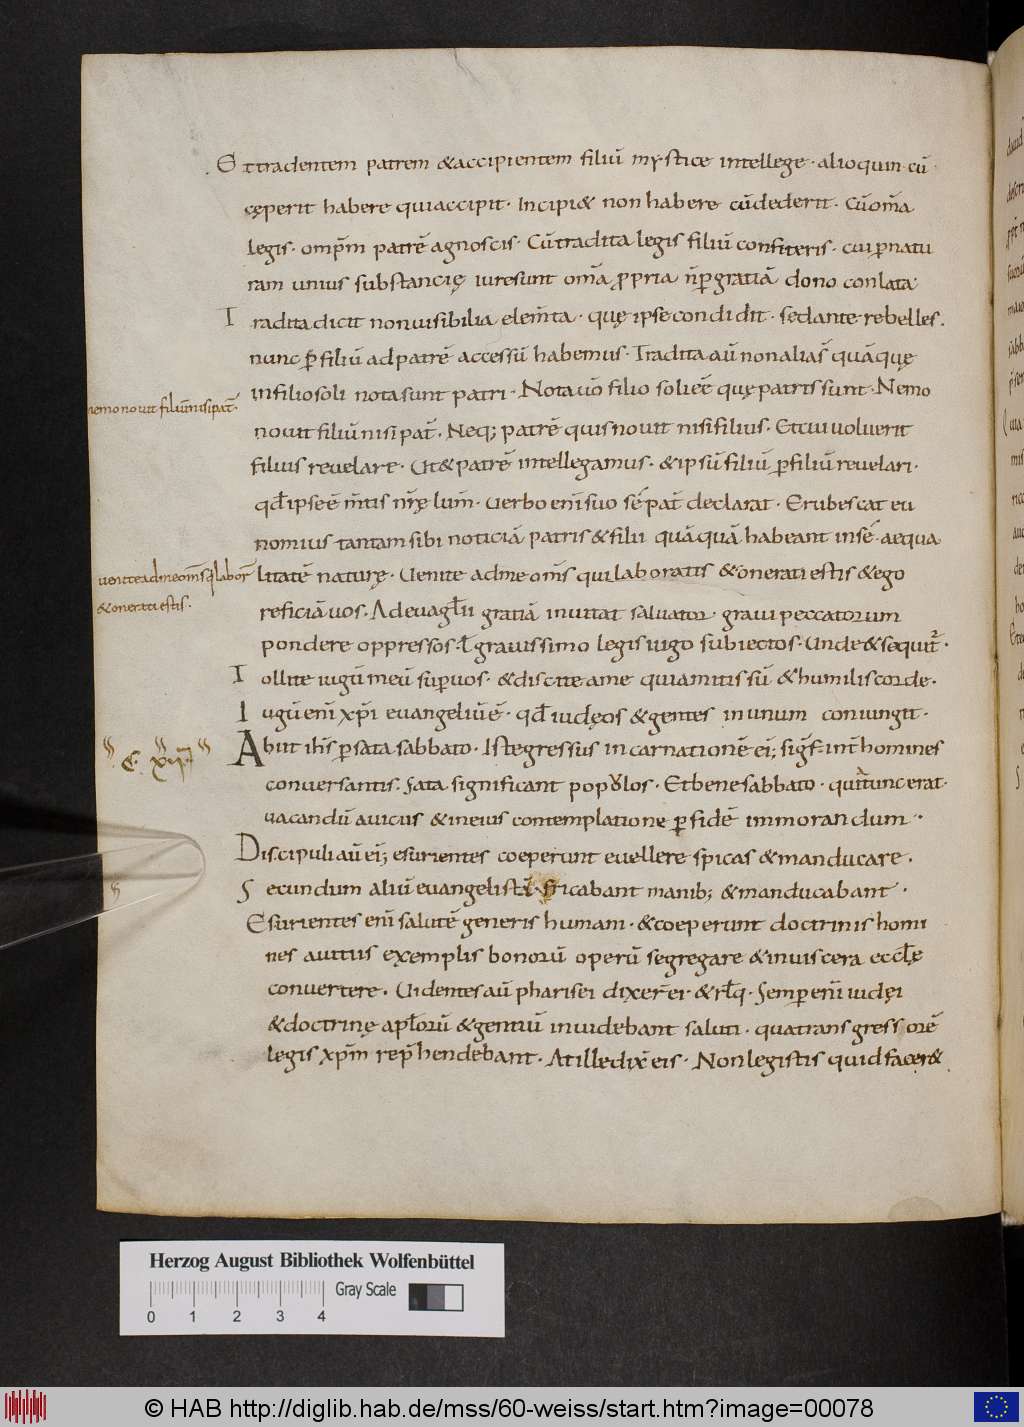 Et tradentem patrem &accipientem filiū mystice intellege · alioquin cū
cęperit habere quiaccipit · Incipi& non habere cūdederit · Cūom̄a
legis · omp̄m patrē agnoscis · Cūtradita legis filiū confiteris · cui ꝑnatu
ram unius substancię iuresunt om̄a ꝓpria n̄ꝑgratiā dono conlata·
Tradita dicit nonuisibilia elem̄ta · quę ipse condidit · sedante rebelles.
nunc ꝑ filiū adpatrē accessū habemus · Tradita aū non alias̄ quāquę
infiliosoli nota sunt patri · Nota uō filio soli eē quę patris sunt · Nemo
nemo nouit filiūnisi pat̄·
nouit filiū nisi pat̄ . Neq; patrē quis nouit nisi filius · Et cui uoluerit
filius reuelare · Ut& patrē intellegamus · &ipsū filiū ꝑfiliū reuelari·
qđ ipse ē m̄tis nr̄ę lum̄ · Uerbo eni suo sē pat̄ declarat · Erubescat eu
nomius tantam sibi noticiā patris & filii quāquā habeant insē · aequa
uenite adme om̄s q labor̄
litatē naturę · Uenite adme om̄s qui laboratis &onerati estis & ego
&onerati estis·
reficiā uos . Ad euaglii gratiā inuitat saluator · graui peccatorum
pondere oppressos · ł grauissimo legis iugo subiectos · Unde & sequit̄ ·
Tollite iugū meū suꝑuos · &discite a me quia mitis sū & humilis corde ·
Iugū eni xp̄i euangeliū ē · qđ iudęos & gentes in unum coniungit ·
C · XII
Abiit ih̄s ꝑsata sabbato · Istegressus in carnationē ei; sigf̄ int̄ homines
conuersantis · Sata significant populos · Et bene sabbato · quit̄tunc erat·
uacandū auicus & ineius contemplatione ꝑfidē immorandum ·
Discipuli aū ei; esurientes coeperunt euellere spicas & manducare ·
Secundum aliū euangelistā · fricabant manib; & manducabant ·
Esurientes eni salutē generis humani · & coeperunt doctrinis homi
nes auitus exemplis bonorū operū segregare & inuiscera eccłę
conuertere . Uidentes aū pharisei dixer̄ ei · & rłq · Semper eni iudęi
& doctrinę apłorū & gentiū inuidebant saluti · quatransgressorē
legis xp̄m rep̄hendebant · At ille dix̄ eis · Non legistis quid facer&
Herzog August Bibliothek Wolfenbüttel
Gray Scale
0 1 2 3 4
© HAB http://diglib.hab.de/mss/60-weiss/start.htm?image=00078